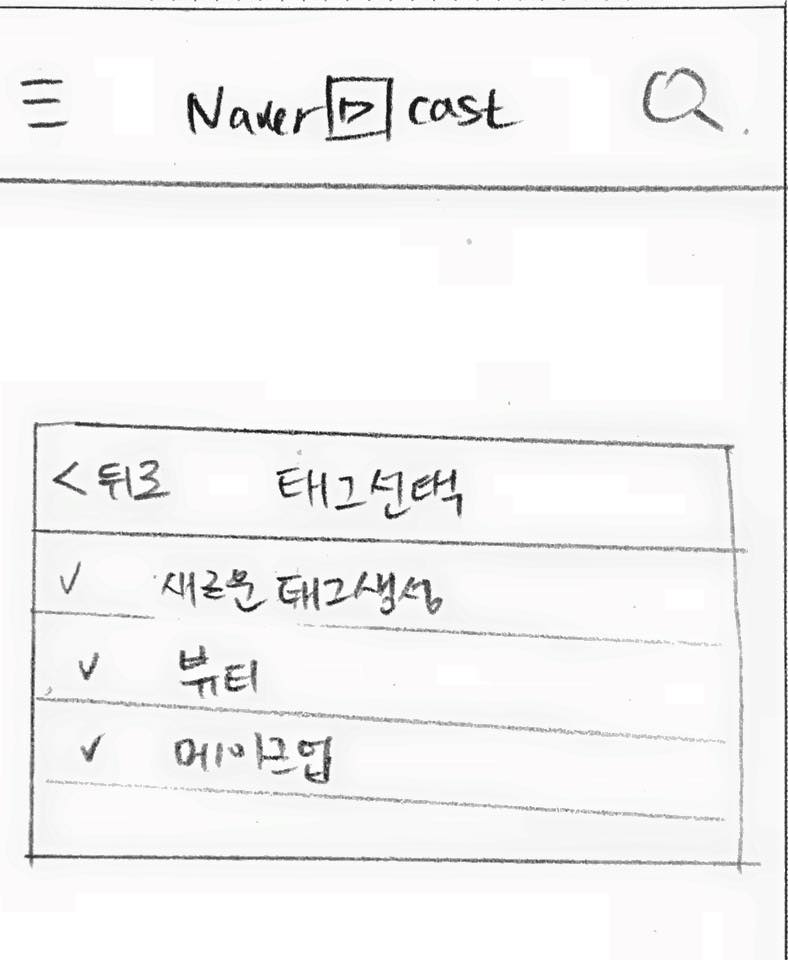 Naver cast
< 뒤로 태그선택
✓ 새로운 태그생성
✓ 뷰티
✓ 메이크업